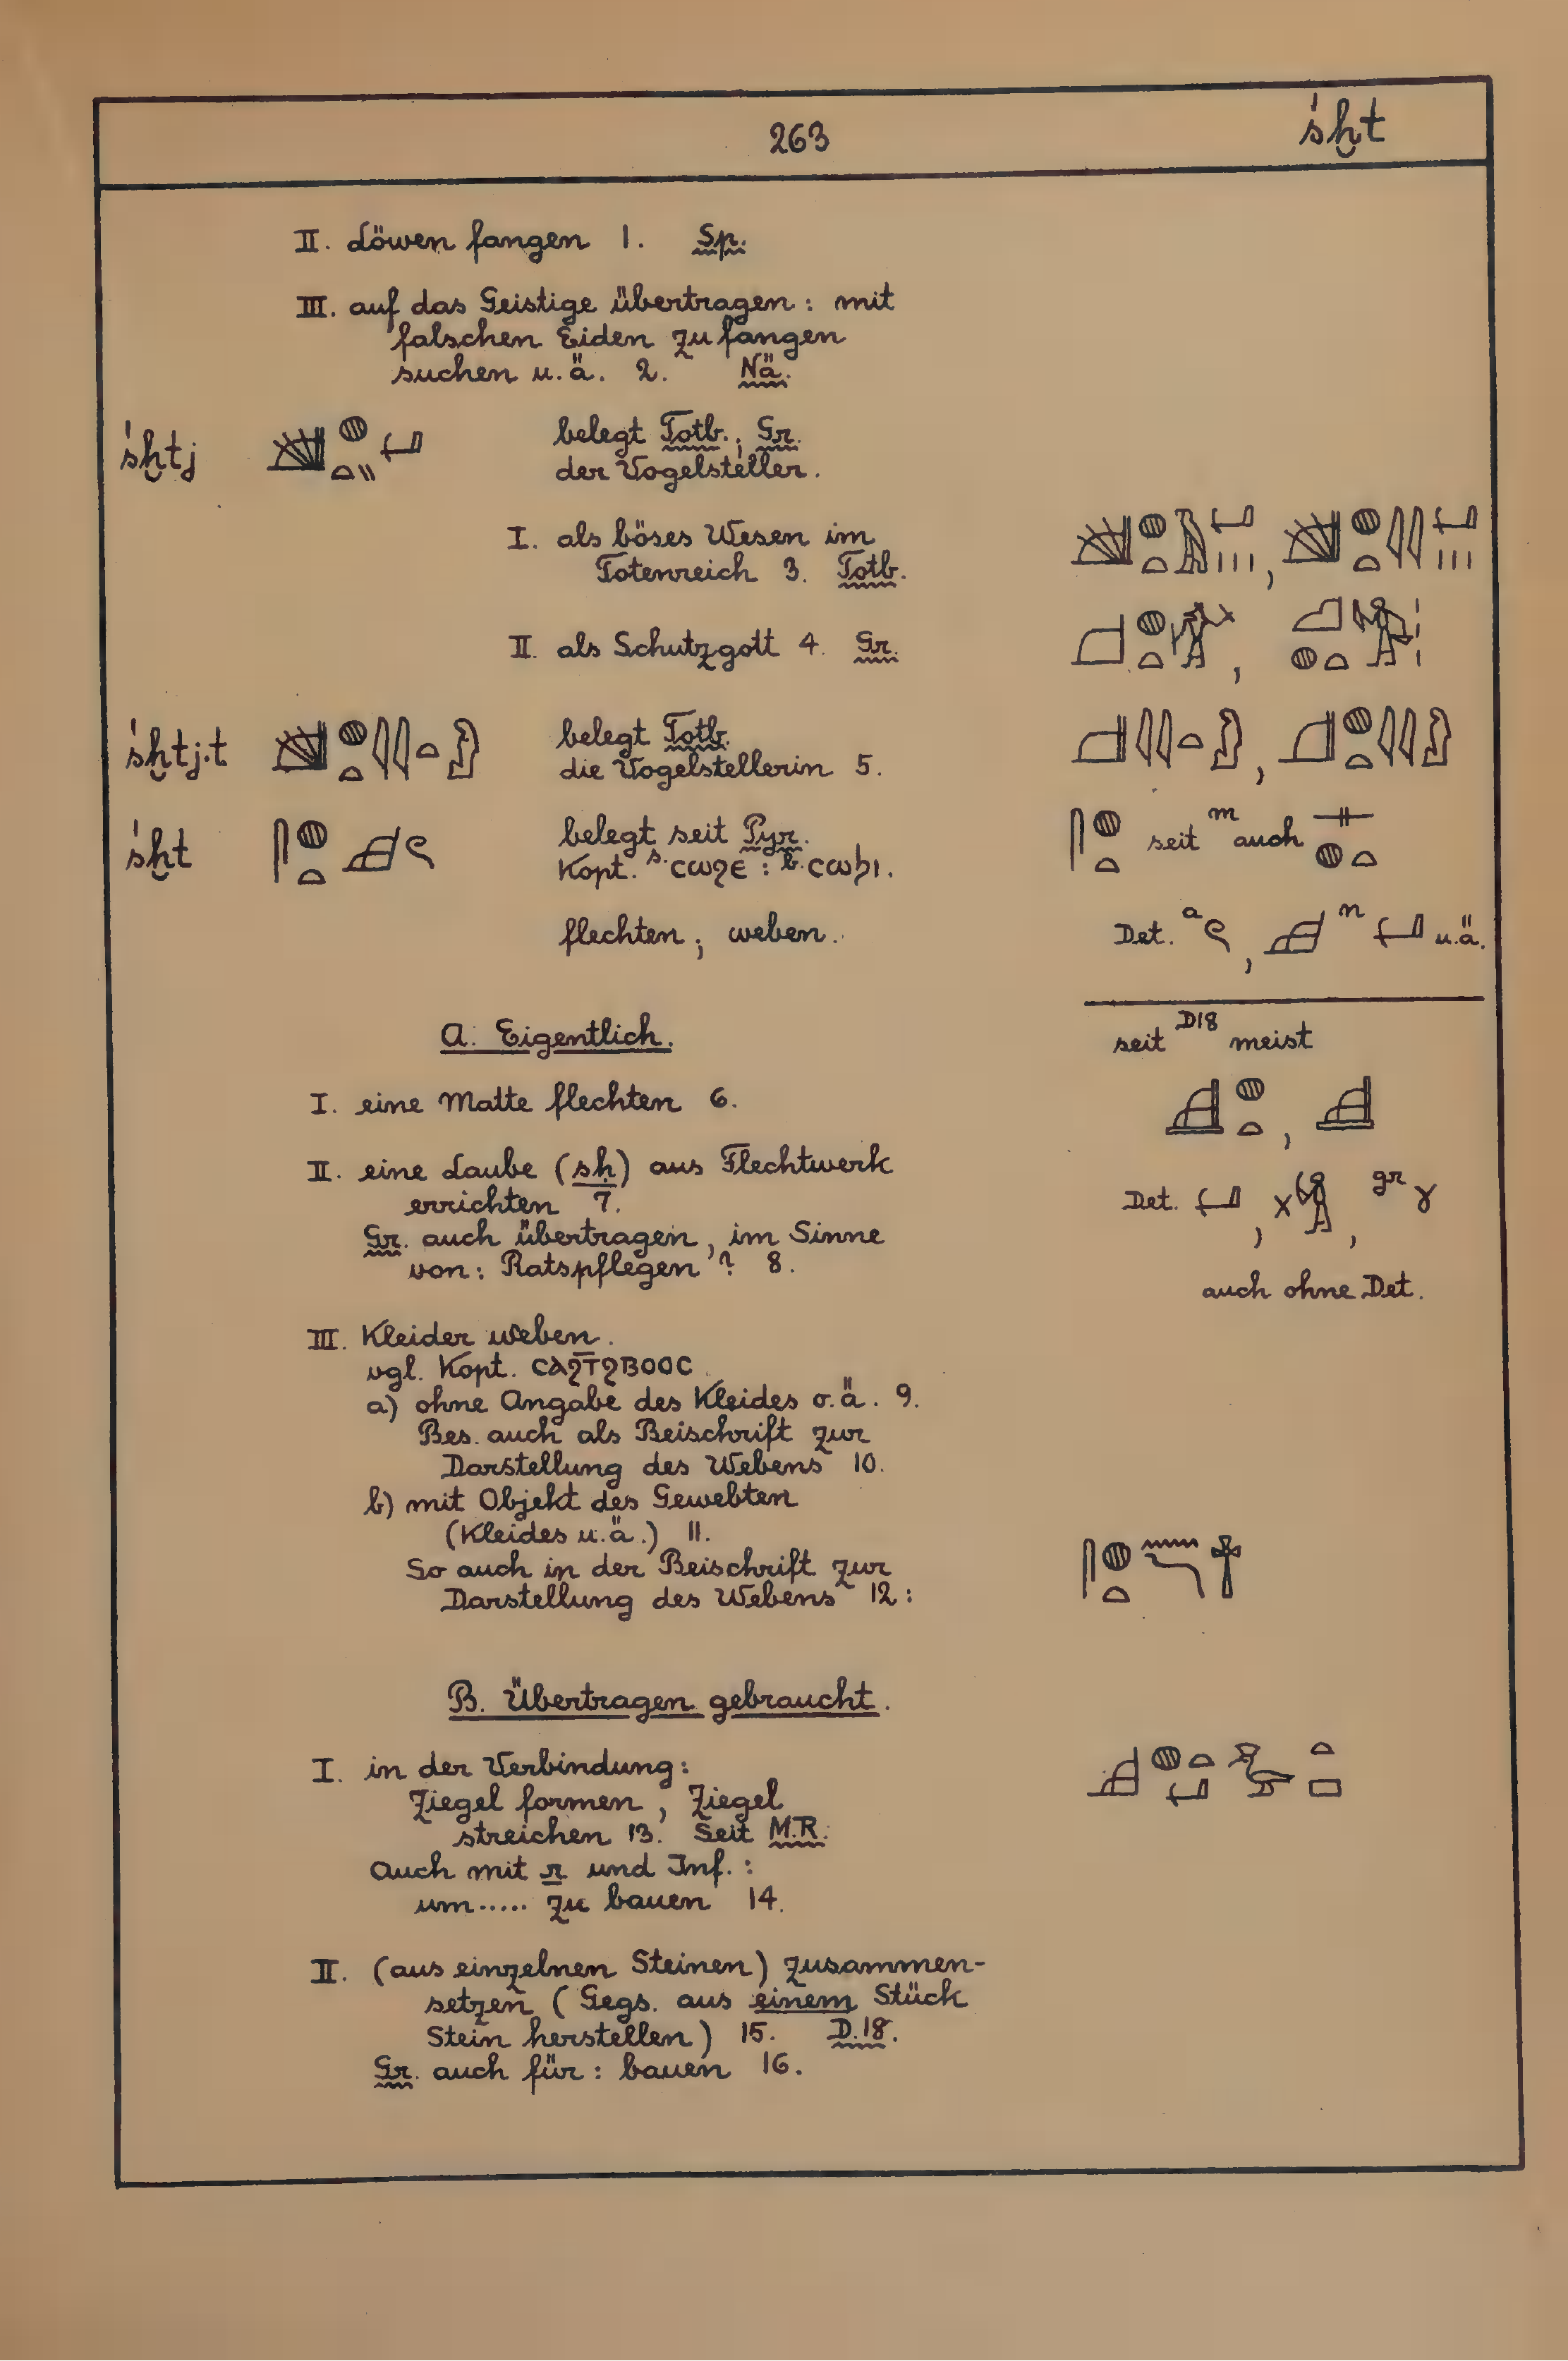 263
śḫt
II. Löwen fangen 1. Sp.
III. auf das Geistige übertragen: mit
falschen Eiden zu fangen
suchen u.ä. 2. Nä.
śḫtj
belegt Totb., Gr.
der Vogelsteller.
I. als böses Wesen im
Totenreich 3. Totb.
II. als Schutzgott 4. Gr.
śḫtj.t
belegt Totb.
die Vogelstellerin 5.
śḫt
belegt seit Pyr.
Kopt. s. ⲥⲱϩⲉ : b. ⲥⲱϧⲓ.
seit m auch
flechten; weben.
Det. a , n u.ä.
A. Eigentlich.
seit D18 meist
I. eine Matte flechten 6.
II. eine Laube (sḥ) aus Flechtwerk
errichten 7.
Gr. auch übertragen, im Sinne
von: Ratspflegen? 8.
Det. , , gr
auch ohne Det.
III. Kleider weben.
vgl. Kopt. ⲥⲁϩⲧ̄ϩⲃⲟⲟⲥ
a) ohne Angabe des Kleides o.ä. 9.
Bes. auch als Beischrift zur
Darstellung des Webens 10.
b) mit Objekt des Gewebten
(Kleides u.ä.) 11.
So auch in der Beischrift zur
Darstellung des Webens 12:
B. Übertragen gebraucht.
I. in der Verbindung:
Ziegel formen, Ziegel
streichen 13. Seit M.R.
Auch mit r und Inf.:
um..... zu bauen 14.
II. (aus einzelnen Steinen) zusammen-
setzen (Gegs. aus einem Stück
Stein herstellen) 15. D.18.
Gr. auch für: bauen 16.